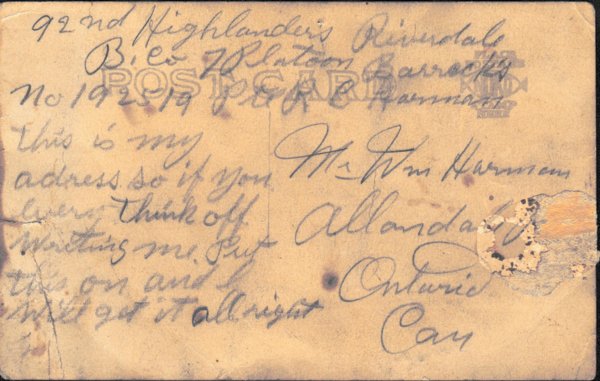 92nd Highlanders Riverdale
B. Co 7 Platoon Barrocks
POST CARD
No 192519 Harman
this is my
adress so if you
every think off
writing me Put
this on and I
will get it allright
Mr Wm Harman
Allandail
Ontario
Can